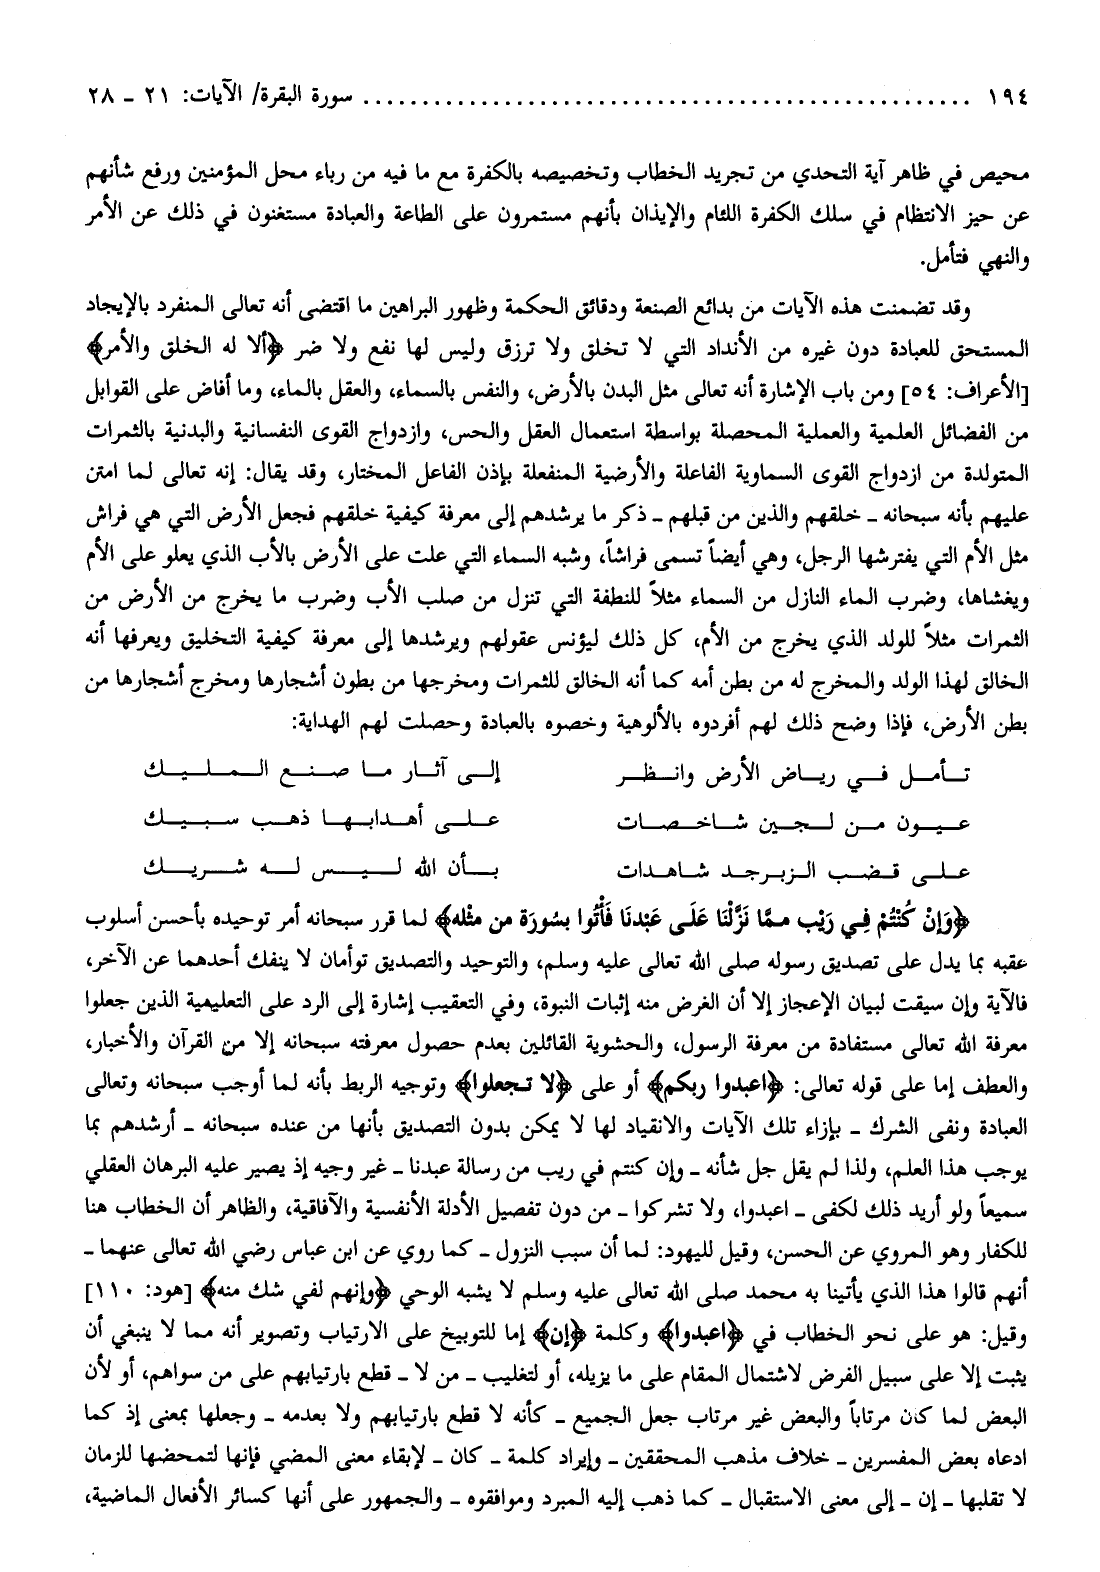 ١٩٤ .................................................... سورة البقرة/ الآيات: ٢١ ـ ٢٨
محيص في ظاهر آية التحدي من تجريد الخطاب وتخصيصه بالكفرة مع ما فيه من رباء محل المؤمنين ورفع شأنهم
عن حيز الانتظام في سلك الكفرة اللئام والإيذان بأنهم مستمرون على الطاعة والعبادة مستغنون في ذلك عن الأمر
والنهي فتأمل.
وقد تضمنت هذه الآيات من بدائع الصنعة ودقائق الحكمة وظهور البراهين ما اقتضى أنه تعالى المنفرد بالإيجاد
المستحق للعبادة دون غيره من الأنداد التي لا تخلق ولا ترزق وليس لها نفع ولا ضر ﴿ألا له الخلق والأمر﴾
[الأعراف: ٥٤] ومن باب الإشارة أنه تعالى مثل البدن بالأرض، والنفس بالسماء، والعقل بالماء، وما أفاض على القوابل
من الفضائل العلمية والعملية المحصلة بواسطة استعمال العقل والحس، وازدواج القوى النفسانية والبدنية بالثمرات
المتولدة من ازدواج القوى السماوية الفاعلة والأرضية المنفعلة بإذن الفاعل المختار، وقد يقال: إنه تعالى لما امتن
عليهم بأنه سبحانه ـ خلقهم والذين من قبلهم ـ ذكر ما يرشدهم إلى معرفة كيفية خلقهم فجعل الأرض التي هي فراش
مثل الأم التي يفترشها الرجل، وهي أيضاً تسمى فراشاً، وشبه السماء التي علت على الأرض بالأب الذي يعلو على الأم
ويغشاها، وضرب الماء النازل من السماء مثلاً للنطفة التي تنزل من صلب الأب وضرب ما يخرج من الأرض من
الثمرات مثلاً للولد الذي يخرج من الأم، كل ذلك ليؤنس عقولهم ويرشدها إلى معرفة كيفية التخليق ويعرفها أنه
الخالق لهذا الولد والمخرج له من بطن أمه كما أنه الخالق للثمرات ومخرجها من بطون أشجارها ومخرج أشجارها من
بطن الأرض، فإذا وضح ذلك لهم أفردوه بالألوهية وخصوه بالعبادة وحصلت لهم الهداية:
تـأمـل فـي ريـاض الأرض وانـظـر إلـى آثـار مـا صـنـع الـمـلـيـك
عـيـون مـن لـجـين شـاخـصـات عـلـى أهـدابـهـا ذهـب سـبـيـك
عـلـى قـضـب الـزبـرجـد شـاهـدات بـأن الله لـيـس لـه شـريـك
﴿وَإِنْ كُنْتُمْ فِي رَيْب ممَّا نَزَّلْنَا عَلَى عَبْدنَا فَأْتُوا بسُورَة من مثْله﴾ لما قرر سبحانه أمر توحيده بأحسن أسلوب
عقبه بما يدل على تصديق رسوله صلى الله تعالى عليه وسلم، والتوحيد والتصديق توأمان لا ينفك أحدهما عن الآخر،
فالآية وإن سيقت لبيان الإعجاز إلا أن الغرض منه إثبات النبوة، وفي التعقيب إشارة إلى الرد على التعليمية الذين جعلوا
معرفة الله تعالى مستفادة من معرفة الرسول، والحشوية القائلين بعدم حصول معرفته سبحانه إلا من القرآن والأخبار،
والعطف إما على قوله تعالى: ﴿اعبدوا ربكم﴾ أو على ﴿لا تجعلوا﴾ وتوجيه الربط بأنه لما أوجب سبحانه وتعالى
العبادة ونفى الشرك ـ بإزاء تلك الآيات والانقياد لها لا يمكن بدون التصديق بأنها من عنده سبحانه ـ أرشدهم بما
يوجب هذا العلم، ولذا لم يقل جل شأنه ـ وإن كنتم في ريب من رسالة عبدنا ـ غير وجيه إذ يصير عليه البرهان العقلي
سميعاً ولو أريد ذلك لكفى ـ اعبدوا، ولا تشركوا ـ من دون تفصيل الأدلة الأنفسية والآفاقية، والظاهر أن الخطاب هنا
للكفار وهو المروي عن الحسن، وقيل لليهود: لما أن سبب النزول ـ كما روي عن ابن عباس رضي الله تعالى عنهما ـ
أنهم قالوا هذا الذي يأتينا به محمد صلى الله تعالى عليه وسلم لا يشبه الوحي ﴿وإنهم لفي شك منه﴾ [هود: ١١٠]
وقيل: هو على نحو الخطاب في ﴿اعبدوا﴾ وكلمة ﴿إن﴾ إما للتوبيخ على الارتياب وتصوير أنه مما لا ينبغي أن
يثبت إلا على سبيل الفرض لاشتمال المقام على ما يزيله، أو لتغليب ـ من لا ـ قطع بارتيابهم على من سواهم، أو لأن
البعض لما كان مرتاباً والبعض غير مرتاب جعل الجميع ـ كأنه لا قطع بارتيابهم ولا بعدمه ـ وجعلها بمعنى إذ كما
ادعاه بعض المفسرين ـ خلاف مذهب المحققين ـ وإيراد كلمة ـ كان ـ لإبقاء معنى المضي فإنها لتمحضها للزمان
لا تقلبها ـ إن ـ إلى معنى الاستقبال ـ كما ذهب إليه المبرد وموافقوه ـ والجمهور على أنها كسائر الأفعال الماضية،